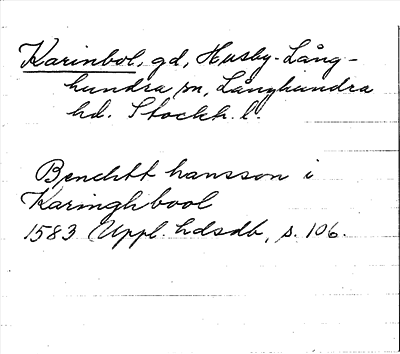 Karinbol, gd, Husby-Lång-
hundra sn, Långhundra
hd. Stockh. l.
Benchtt hansson i
Karinghbool
1583 Uppl. hdsdb, s. 106.